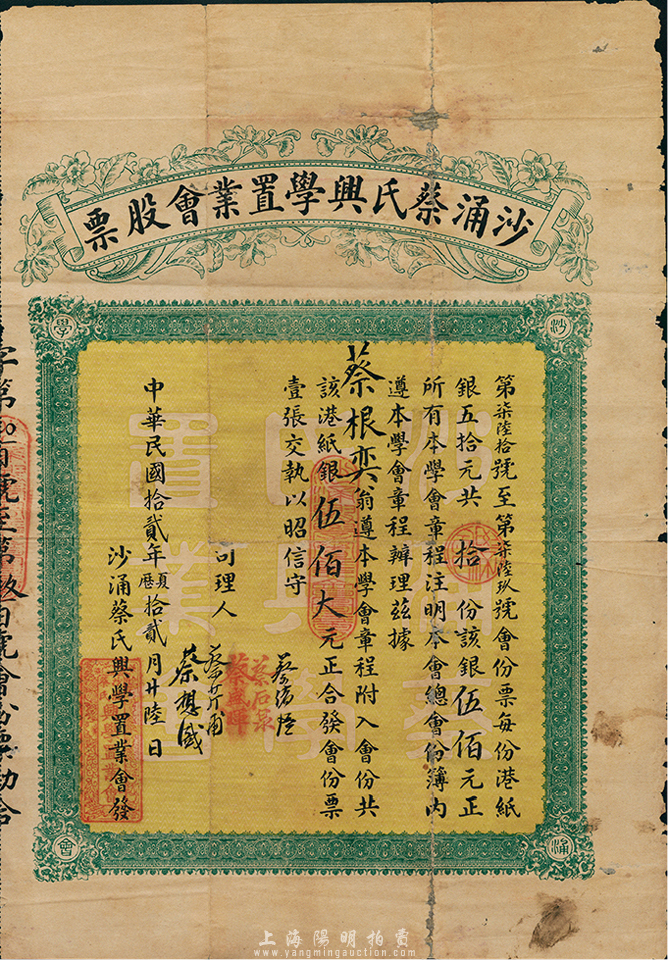 沙涌蔡氏興學置業會股票
第柒陸拾號至第柒陸玖號會份票每份港紙
銀五拾元共拾份該銀伍佰元正
所有本學會章程注明本會總會份簿內
遵本學會章程辦理茲據
蔡根奕翁遵本學會章程附入會份共
該港紙銀伍佰大元正合發會份票
壹張交執以昭信守
司理人
蔡石泉
蔡盛暉
中華民國拾貳年夏曆拾貳月廿陸日
沙涌蔡氏興學置業會發
沙
涌
學
會
置業
上海陽明拍賣
www.yangmingauction.com